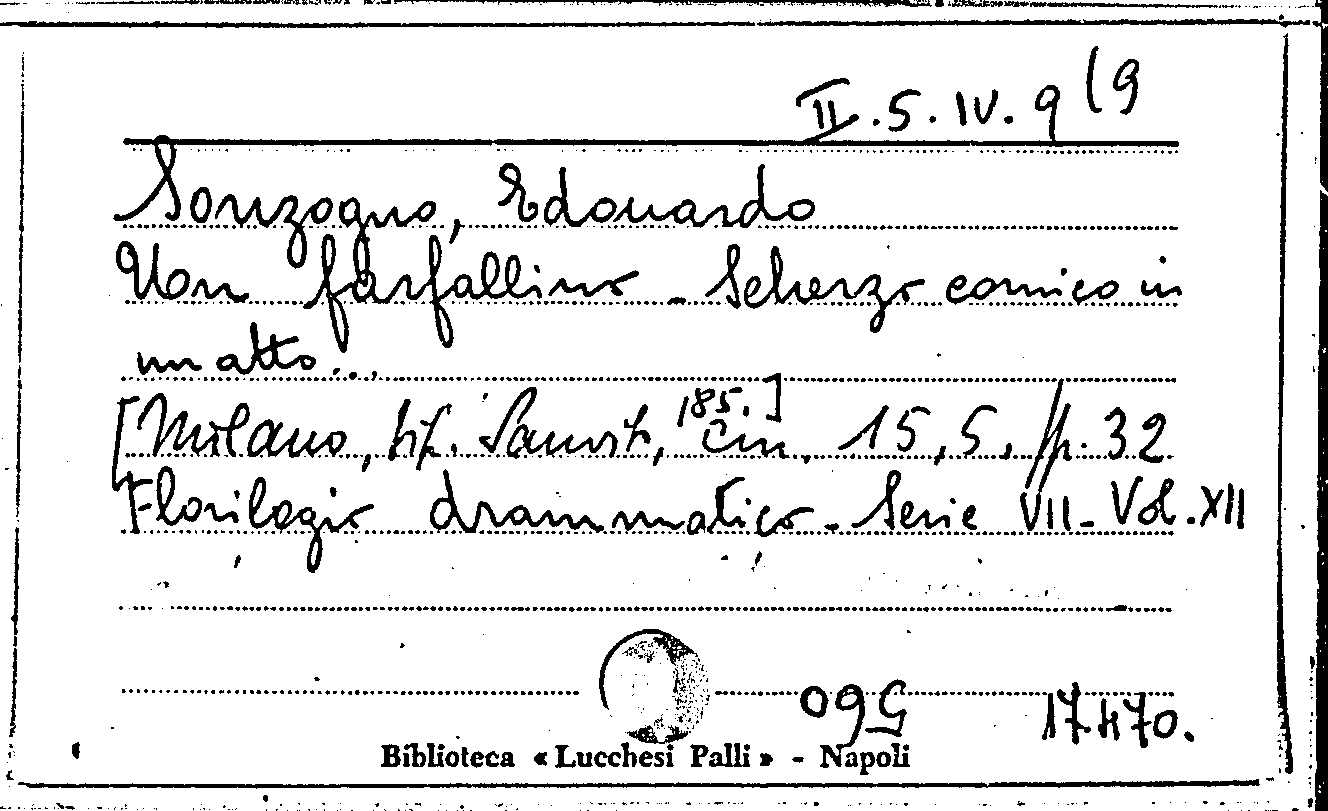 II.5.IV.9(9
Sonzogno, Edouardo
Uon farfallino - Scherzo comico in
un atto...
[Milano, tip. Sanvito, 185.] cm. 15,5, pp. 32
Florilegio drammatico - Serie VII - Vol. XII
560 17.470.
Biblioteca « Lucchesi Palli » - Napoli